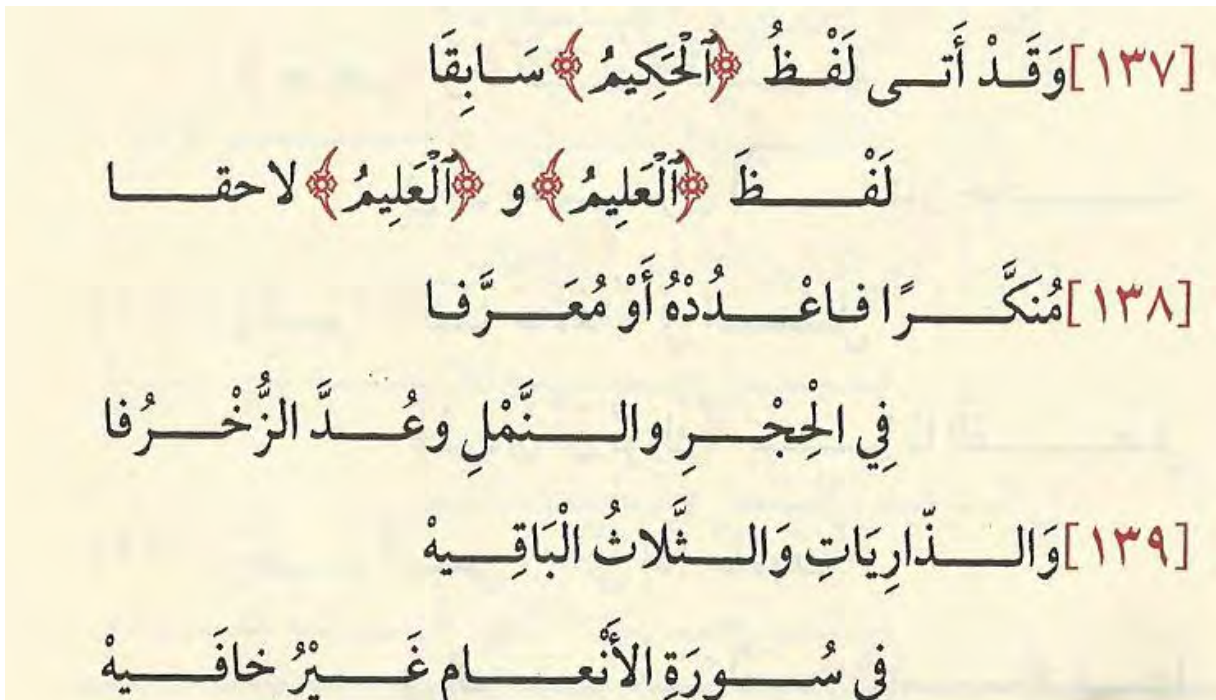 [١٣٧] وَقَدْ أَتى لَفْظُ ﴿ٱلْحَكِيمُ﴾ سَابِقَا
لَفْظَ ﴿ٱلْعَلِيمُ﴾ و ﴿ٱلْعَلِيمُ﴾ لاحقا
[١٣٨] مُنَكَّرًا فاعْدُدْهُ أَوْ مُعَرَّفا
فِي الْحِجْرِ والنَّمْلِ وعُدَّ الزُّخْرُفا
[١٣٩] وَالذّارِيَاتِ وَالثَّلاثُ الْبَاقِيهْ
في سُورَةِ الأَنْعام غَيْرُ خافَيهْ